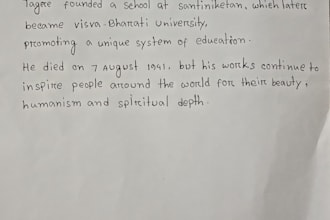 Tagore founded a school at santiniketan, which later
became visva-Bharati university,
promoting a unique system of education.
He died on 7 August 1941, but his works continue to
inspire people around the world for their beauty,
humanism and spiritual depth.